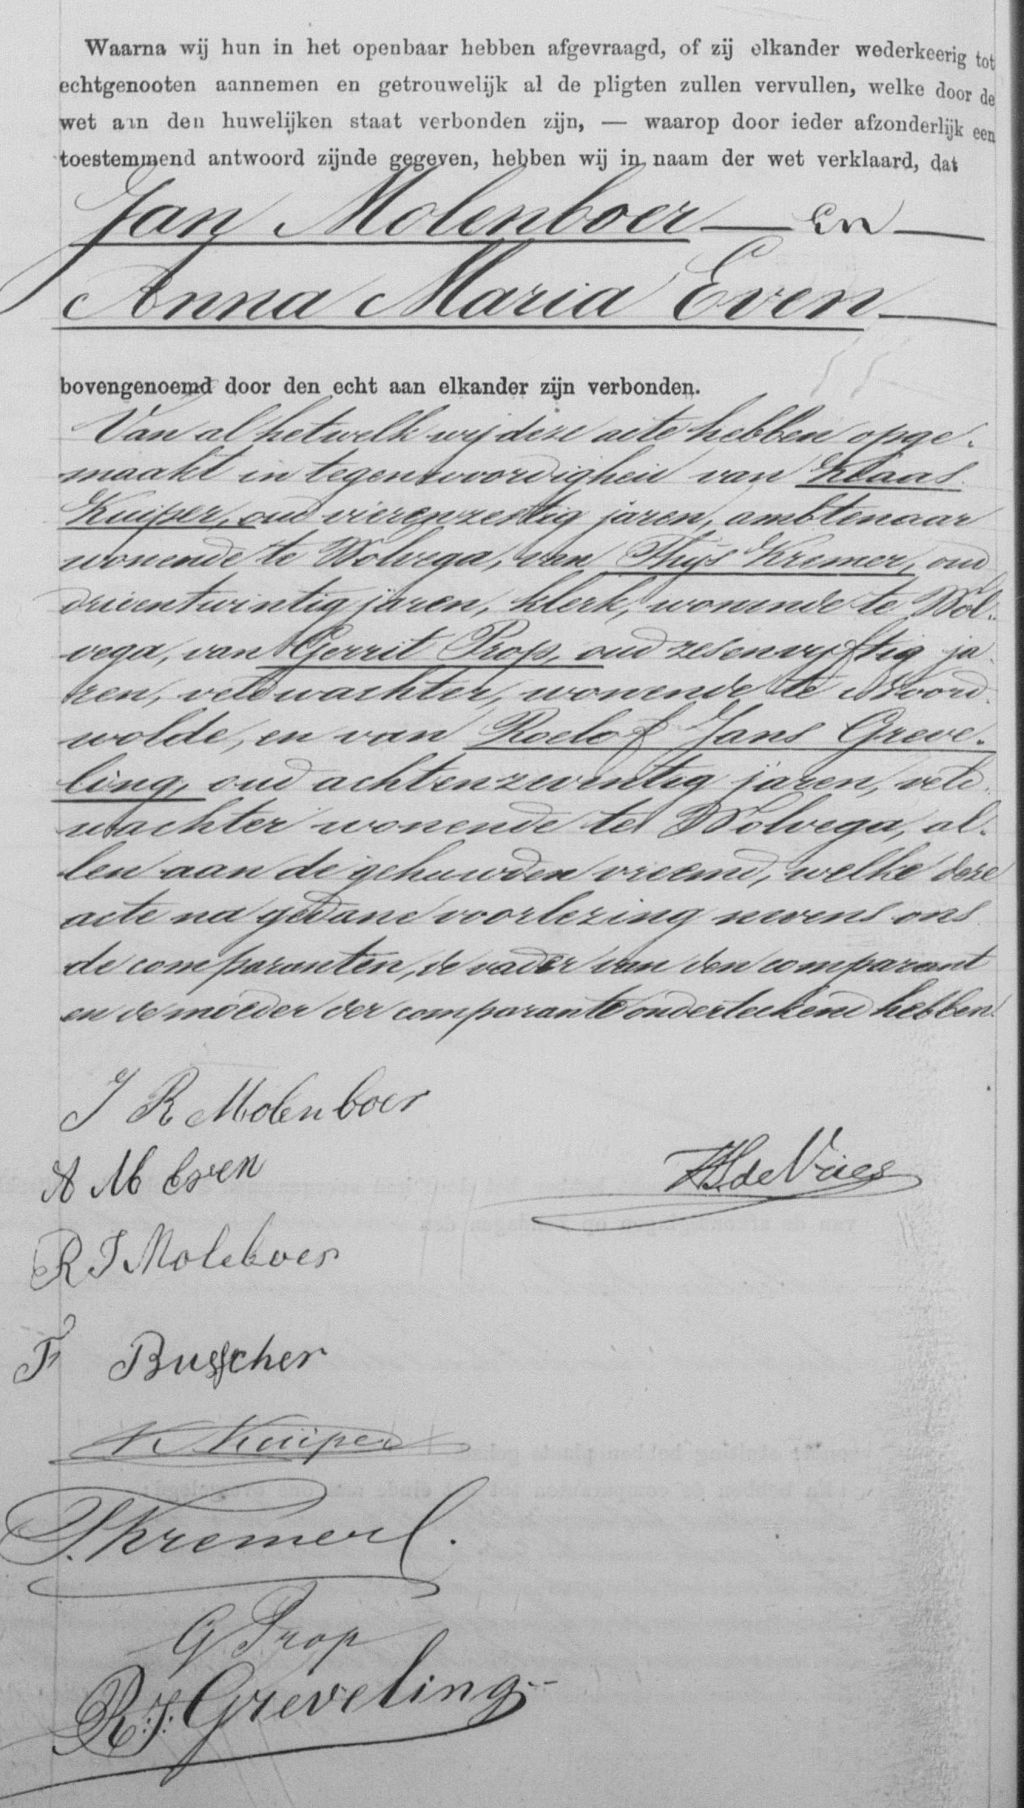 Waarna wij hun in het openbaar hebben afgevraagd, of zij elkander wederkeerig tot
echtgenooten aannemen en getrouwelijk al de pligten zullen vervullen, welke door de
wet aan den huwelijken staat verbonden zijn, — waarop door ieder afzonderlijk een
toestemmend antwoord zijnde gegeven, hebben wij in naam der wet verklaard, dat
Jan Molenboer — en —
Anna Maria Even —
bovengenoemd door den echt aan elkander zijn verbonden.
Van al hetwelk wij deze acte hebben opge-
maakt in tegenwoordigheid van Klaas
Kuiper, oud vierenzestig jaren, ambtenaar
wonende te Wolvega, van Thijs Kremer, oud
drieentwintig jaren, klerk, wonende te Wol-
vega, van Gerrit Prop, oud zesenvijftig ja-
ren, veldwachter, wonende te Noord-
wolde, en van Roelof Jans Greve-
ling, oud achtenzeventig jaren, veld-
wachter wonende te Wolvega, al-
len aan de gehuwden vreemd, welke deze
acte na gedane voorlezing nevens ons
de comparanten, de vader van den comparant
en de moeder der comparante onderteekend hebben.
J R Molenboer
A M Even
HS de Vries
R J Molenboer
F Busscher
K Kuiper
T. Kremer
G Prop
R. J. Greveling